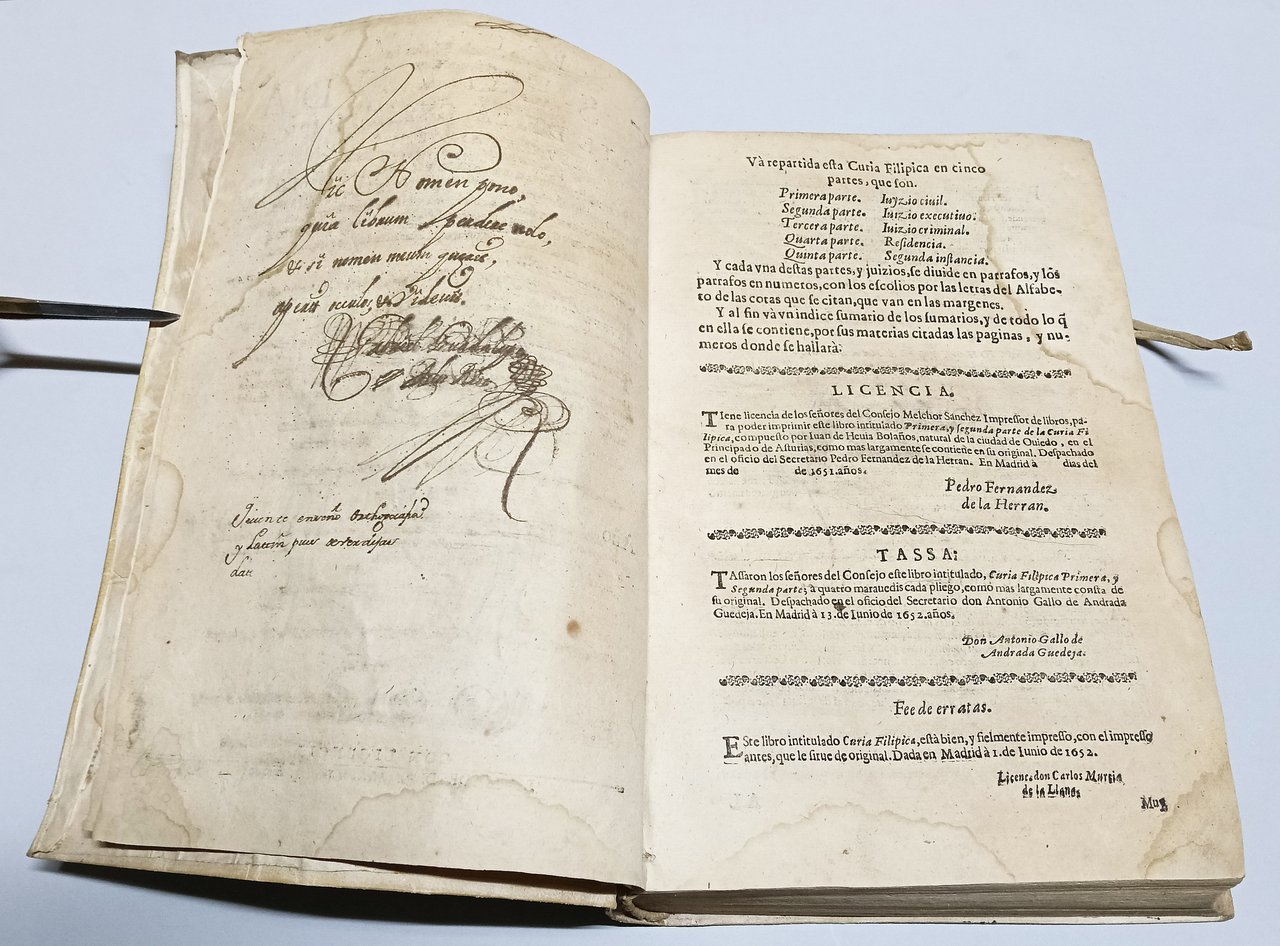 Hic Nomen pono,
quia librum perdere nolo,
& si nomen meum queris,
oculos, & videvis.
y
Và repartida eſta Curia Filipica en cinco
partes, que ſon.
Primera parte. Iuyzio ciuil.
Segunda parte. Iuizio executiuo.
Tercera parte. Iuizio criminal.
Quarta parte. Reſidencia.
Quinta parte. Segunda inſtancia.
Y cada vna deſtas partes, y juizios, ſe diuide en parrafos, y los
parrafos en numeros, con los eſcolios por las letras del Alfabe-
to de las cotas que ſe citan, que van en las margenes.
Y al fin và vn indice ſumario de los ſumarios, y de todo lo q̃
en ella ſe contiene, por ſus materias citadas las paginas, y nu-
meros donde ſe hallarà.
LICENCIA.
TIene licencia de los ſeñores del Conſejo Melchor Sanchez Impreſſor de libros, pa-
ra poder imprimir eſte libro intitulado Primera, y ſegunda parte de la Curia Fi
lipica, compueſto por Iuan de Heuia Bolaños, natural de la ciudad de Ouiedo, en el
Principado de Aſturias, como mas largamente ſe contiene en ſu original. Deſpachado
en el oficio del Secretario Pedro Fernandez de la Herran. En Madrid à dias del
mes de de 1651. años.
Pedro Fernandez
de la Herran.
TASSA:
TAſſaron los ſeñores del Conſejo eſte libro intitulado, Curia Filipica Primera, y
Segunda parte, a quatro marauedis cada pliego, como mas largamente conſta de
ſu original. Deſpachado en el oficio del Secretario don Antonio Gallo de Andrada
Guedeja. En Madrid à 13. de Iunio de 1652. años.
Don Antonio Gallo de
Andrada Guedeja.
Fee de erratas.
ESte libro intitulado Curia Filipica, eſtà bien, y fielmente impreſſo, con el impreſſo
antes, que le ſirue de original. Dada en Madrid à 1. de Iunio de 1652.
Licenc. don Carlos Murcia
de la Llana.
Muy